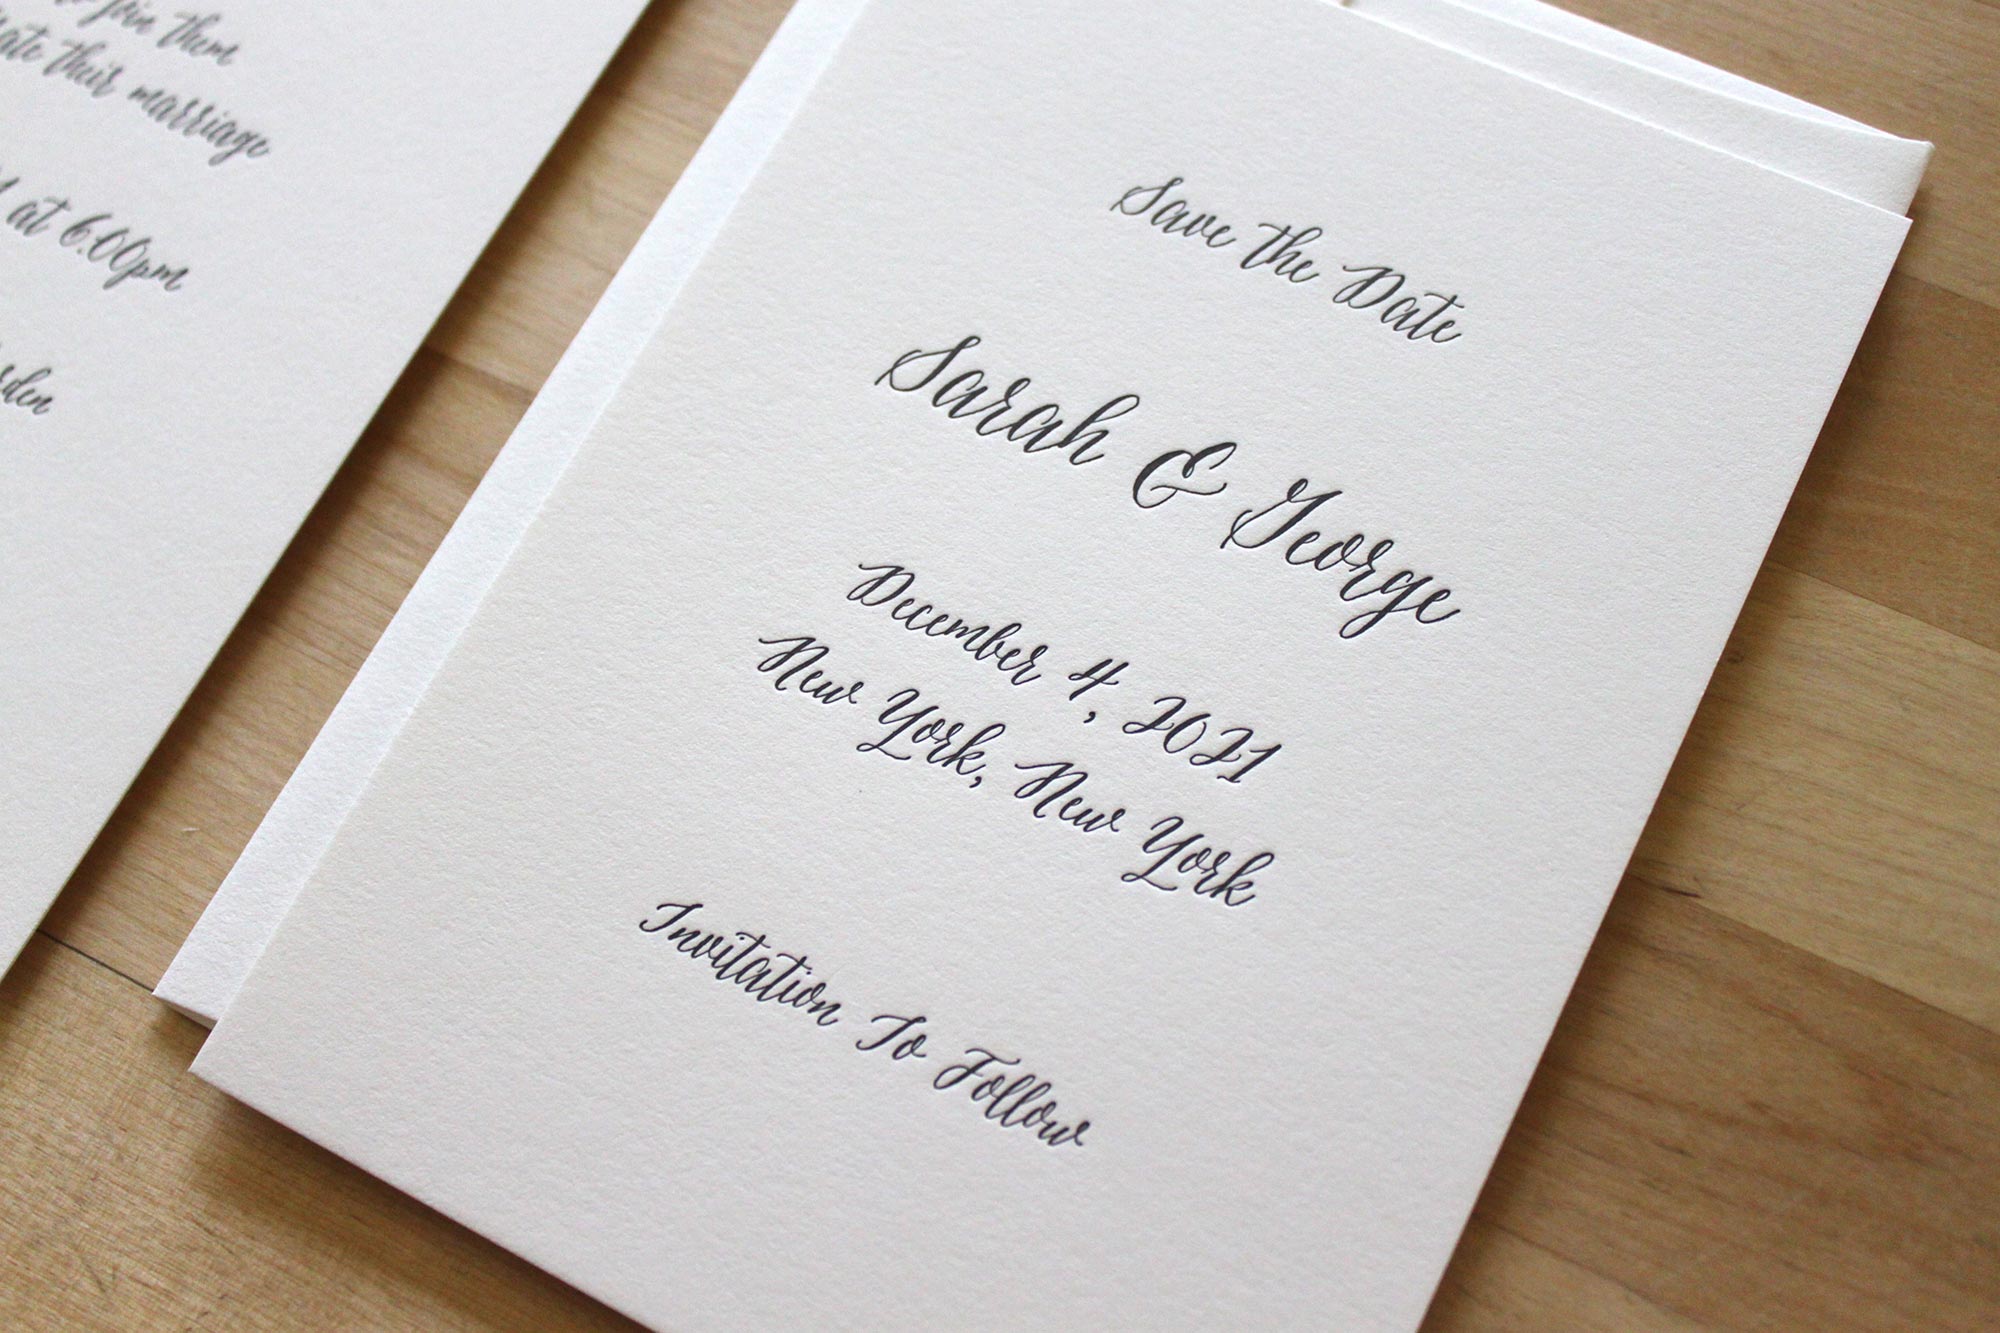 join them
their marriage
at 6:00pm
Save the Date
Sarah & George
December 4, 2021
New York, New York
Invitation To Follow